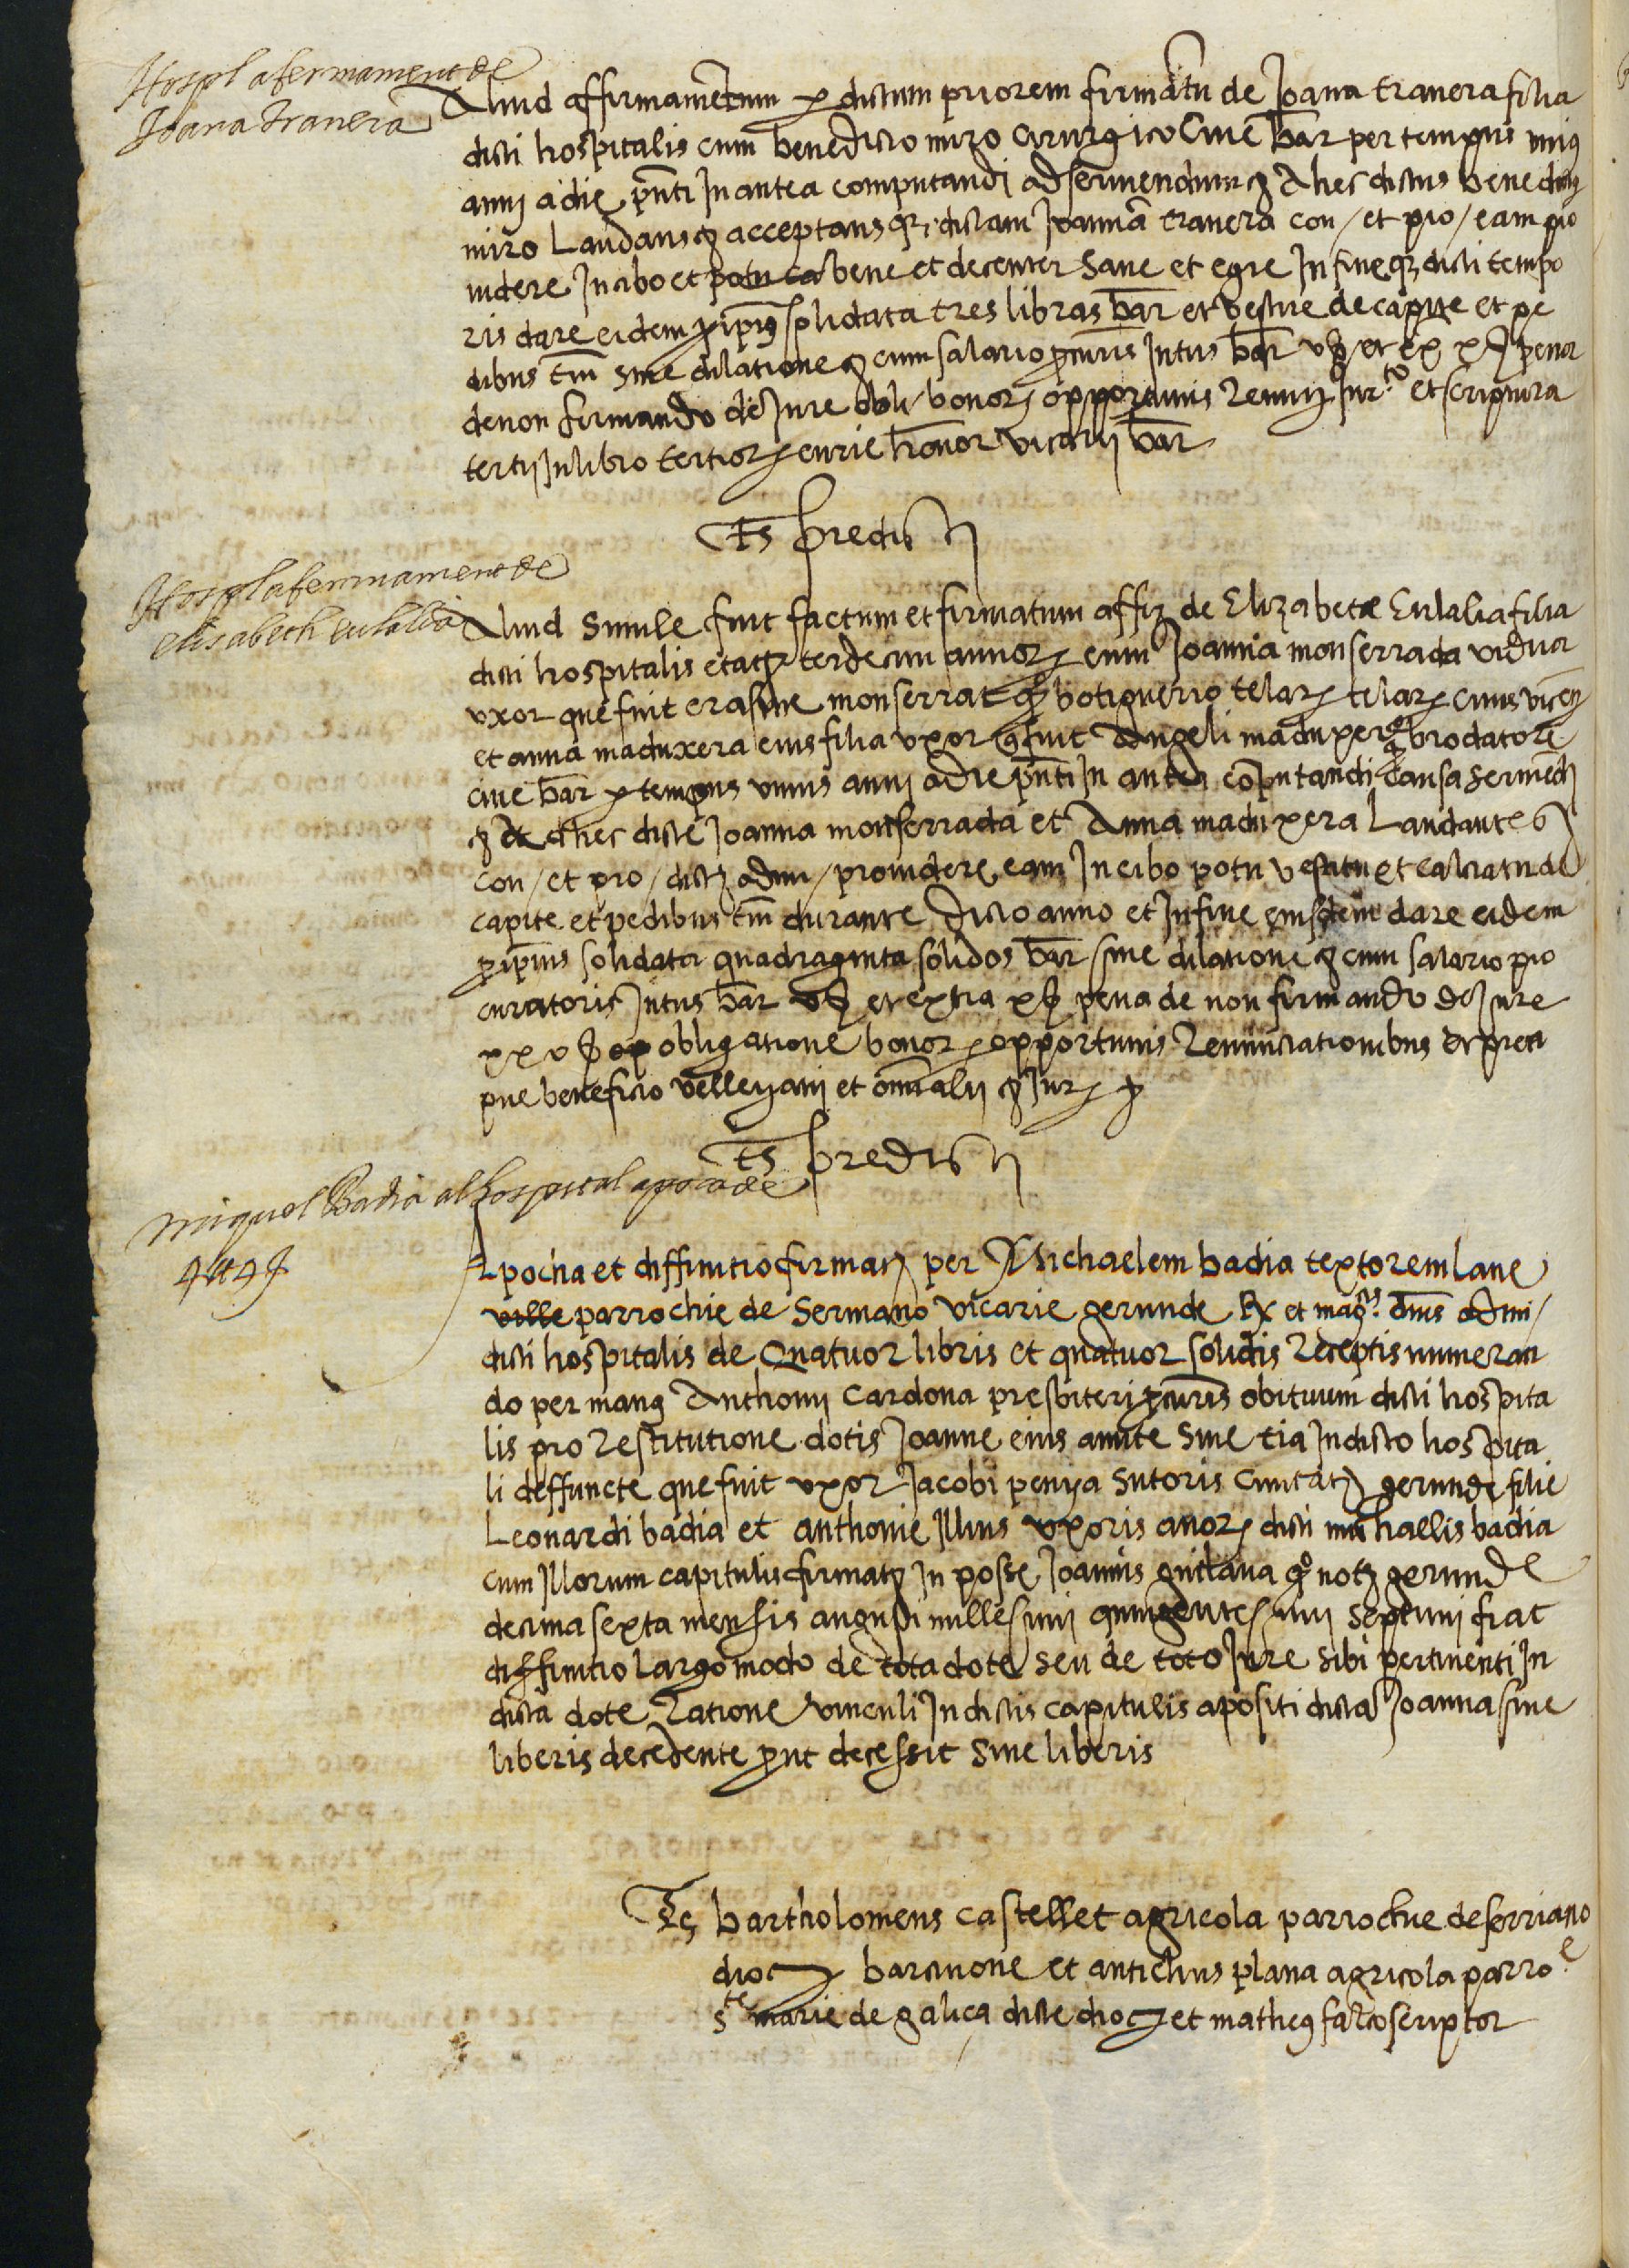 Hospl afermament de
Joana Travera
Aliud affirmamentum per dictum priorem firmatu de Joana travera filia
dicti hospitalis cum benedicto miro cirurgico Cive bar per tempus unius
anni a die pnti In antea computandi ad serviendum et Ad hec dictus benedictus
miro Laudans et acceptans que dictam Joannã travera con / et pro / eam pro
videre In cibo et potu bene et decenter Sane et egre In fine que dicti tempo
ris dare eidem pro ipsius solidata tres libras bar et vestire de capite et pe
dibus tm sine dilatione et cum salario procuris Intus bar v ß et ex x ß pena
de non firmando de Jure obli / bonor opportunis Renun Jur.to et scriptura
tertij In libro tertior curie honor vicarij bar
Ts predicti
Hospl afermament de
elisabeth eulalia
Aliud Simile fuit factum et firmatum affir de Elizabeta Eulalia filia
dicti hospitalis etatis terdecim annor cum Joanna monserrada vidua
uxor que fuit erasme monserrat qº botiguerio telar telar civis
et anna maduxera eius filia uxor q fuit Angeli maduxer qº brodatore
cive bar per tempus unius anni a die pnti In antea computandi causa serviendi
et Ad hec dicte Joanna monserrada et Anna maduxera Laudantes
con / et pro / dict admi / providere eam In cibo potu vestitu et calciatu de
capite et pedibus tm durante dicto anno et In fine eiusdem dare eidem
pro ipsius solidata quadraginta solidos bar sine dilatione et cum salario pro
curatoris Intus bar v ß et extra x ß pena de non firmando de Jure
xx v ß obligatione bonor opportunis Renunciationibus et preci
pue beneficio velleyani et omni alij et Jur
Ts predicti
miquel Badia al hospital apoca de
4 ll 4 ß
Apocha et diffinitio firmat per Michaelem badia textorem lane
ville parrochie de Sermano vicarie gerunde Rx et magcis dnis admi /
dicti hospitalis de Quatuor libris et quatuor solidis Receptis numeran
do per manus Anthonij Cardona presbiteri procuris obituum dicti hospita
lis pro Restitutione dotis Joanne eius amite Sine tia In dicto hospita
li deffuncte que fuit uxor Jacobi penya Sutoris Civitat gerunde filie
Leonardi badia et anthonie Illius uxoris avor dicti michaellis badia
cum Illorum capitulis firmat In posse Joannis qº not gerunde
decima sexta mensis augusti millesimi quingentesimi septimi fiat
diffinitio largo modo de tota dote seu de toto Jure sibi pertinenti In
dicta dote Ratione vinculi In dictis capitulis apositi dicta Joanna sine
liberis decedente prout decessit Sine liberis
Ts bartholomeus castellet agricola parrochie de serriano
dioc barcinone et antichus plana agricola parroe
Ste marie de galica dicte dioc et matheus falco scriptor